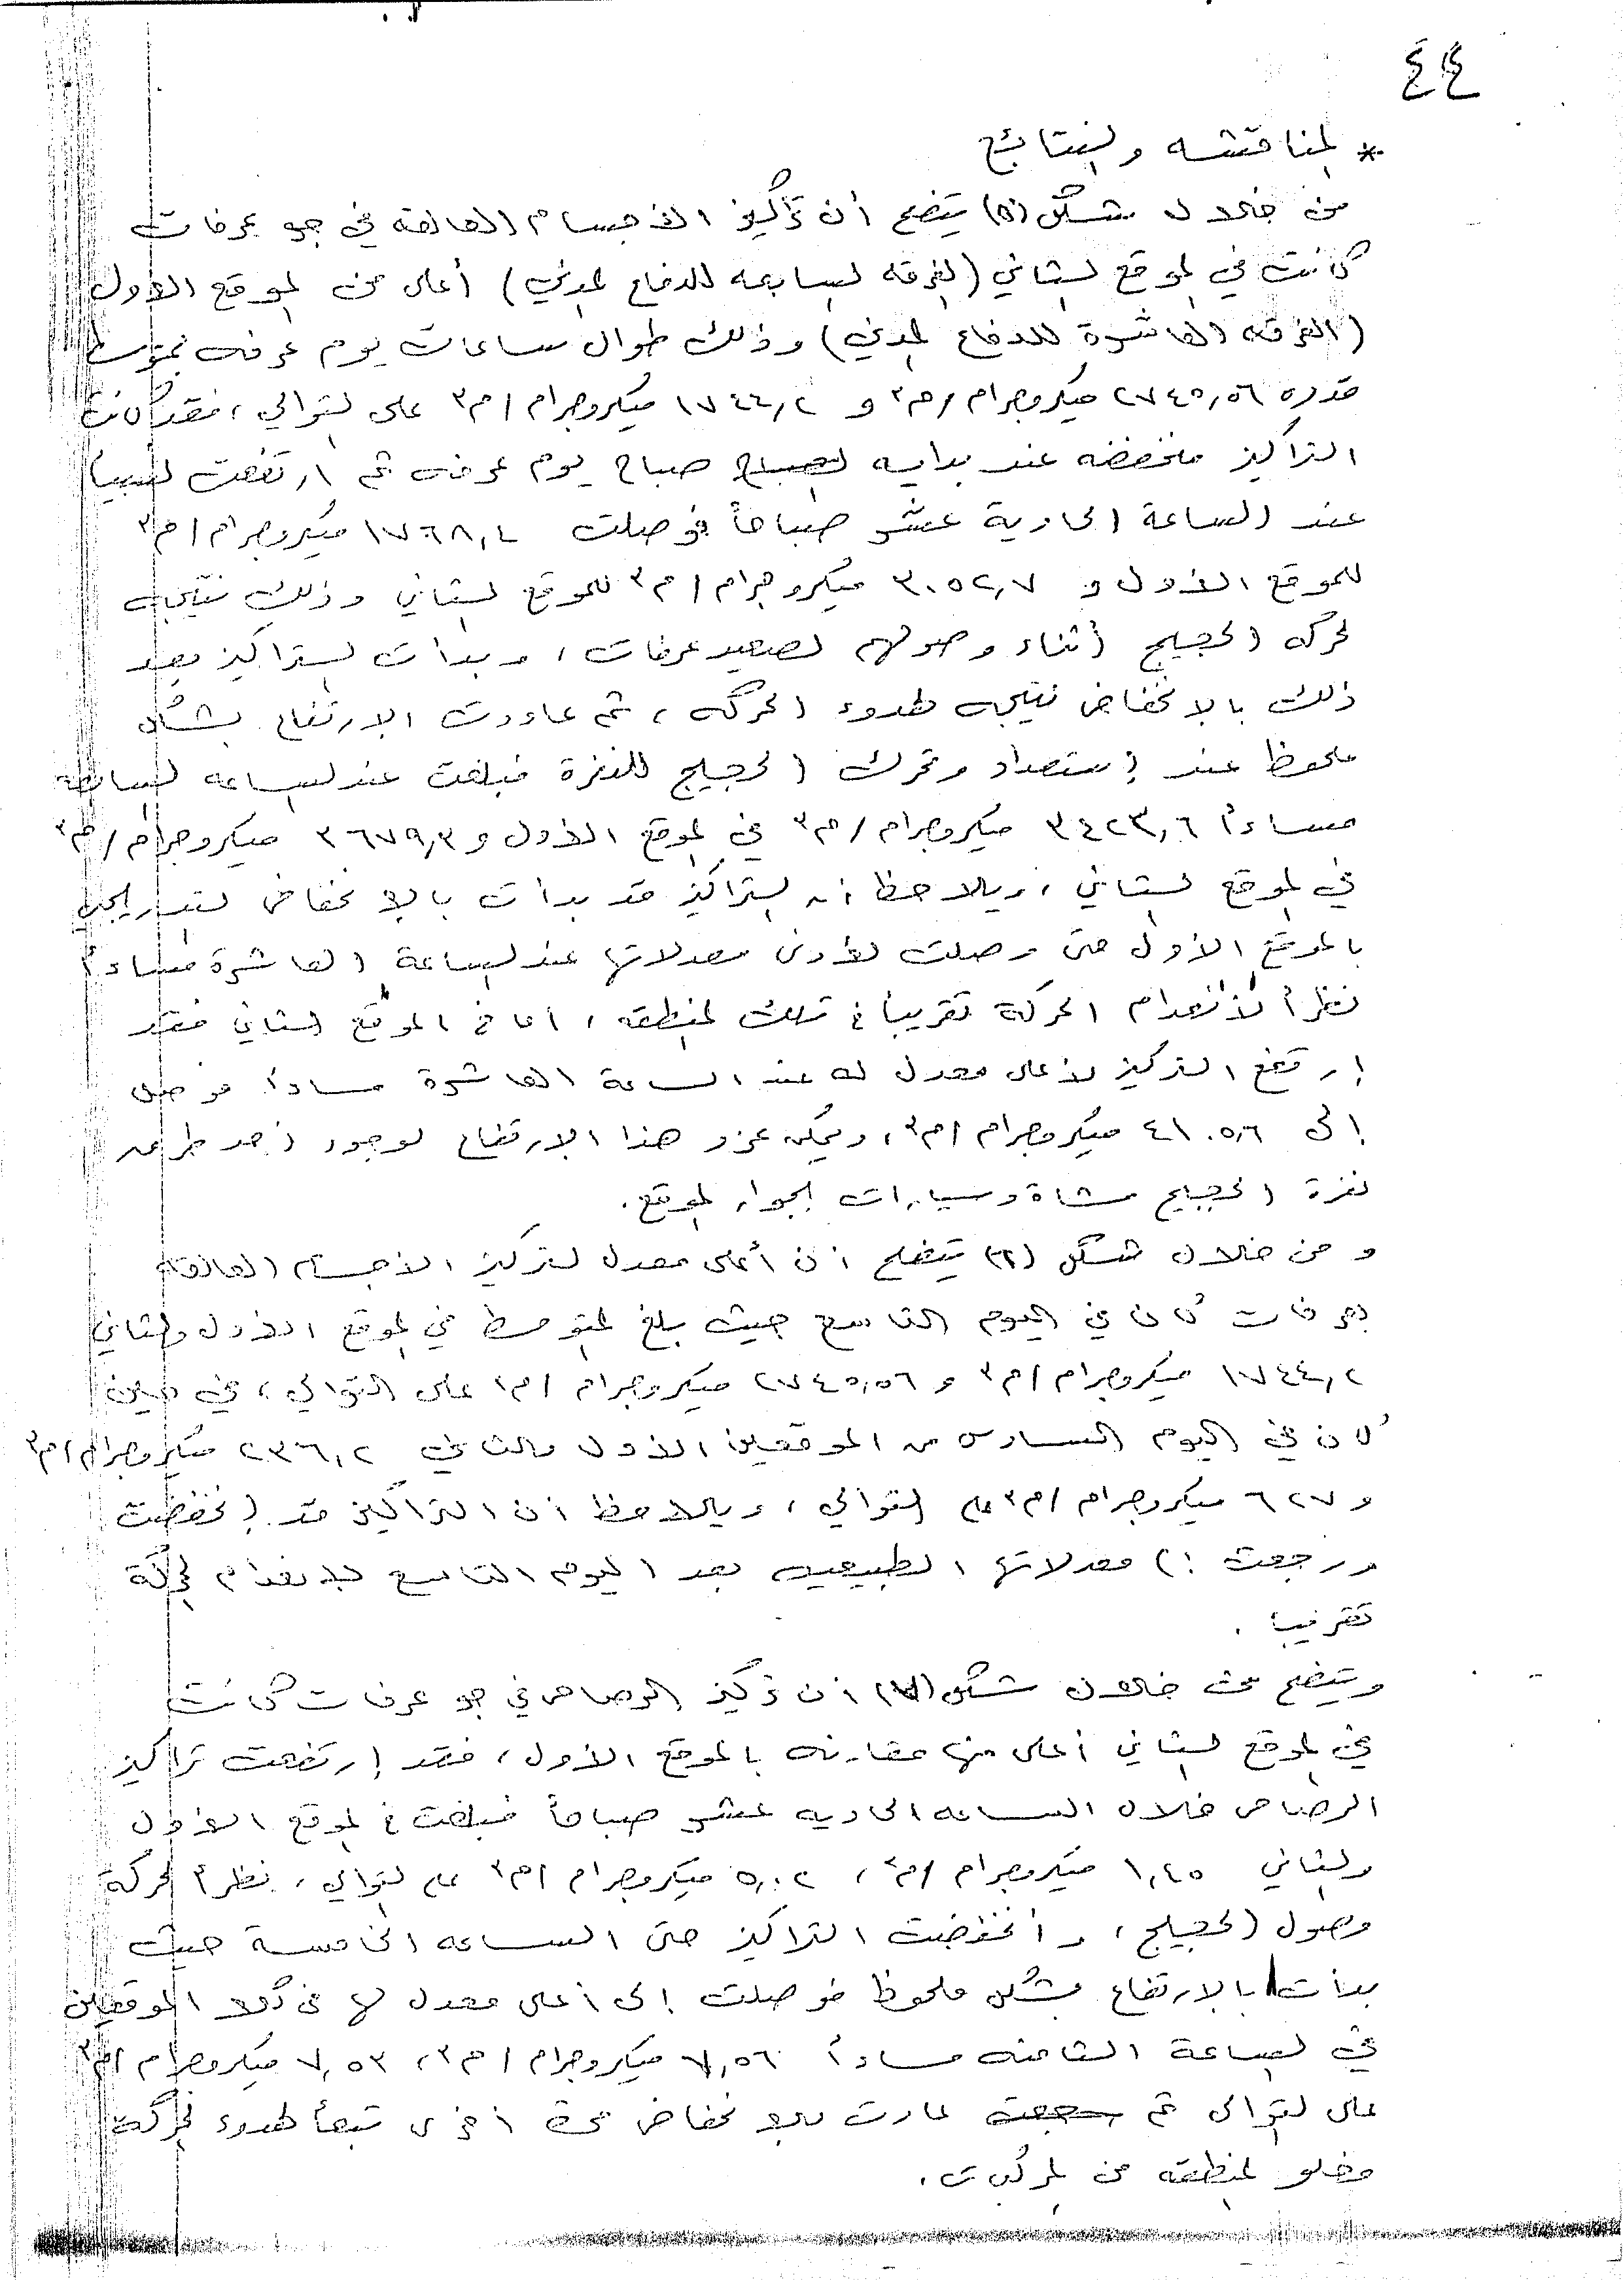 ٤٤
* المناقشه والنتائج
من خلال شكل (٥) يتضح أن تركيز الأجسام العالقه في جو عرفات
كانت في الموقع الثاني (الفرقه السابعه للدفاع المدني) أعلى من الموقع الأول
(الفرقه العاشرة للدفاع المدني) وذلك طوال ساعات يوم عرفه بمتوسط
قدره ٢٧٤٥,٥٦ ميكروجرام/م٣ و ١٧٤٤,٢ ميكروجرام/م٣ على التوالي، فقد كانت
التراكيز منخفضه عند بدايه الصباح صباح يوم عرفه ثم ارتفعت نسبياً
عند الساعة الحادية عشر صباحاً فوصلت ١٧٦٨,٤ ميكروجرام/م٣
للموقع الأول و ٣٠٥٢,٧ ميكروجرام/م٣ للموقع الثاني وذلك نتيجه
لحركه الحجيج أثناء وصولهم لصعيد عرفات، وبدأت التراكيز بعد
ذلك بالانخفاض نتيجه لهدوء الحركه، ثم عاودت الارتفاع بشكل
ملحوظ عند إستعداد وتحرك الحجيج للنفرة فبلغت عند الساعه السابعه
مساءاً ٣٤٢٣,٦ ميكروجرام/م٣ في الموقع الأول و ٣٦٧٩,٣ ميكروجرام/م٣
في الموقع الثاني، ويلاحظ أن التراكيز قد بدأت بالانخفاض التدريجي
بالموقع الأول حتى وصلت لأدنى معدلاتها عند الساعة العاشرة مساءاً
نظراً لأنعدام الحركة تقريباً في تلك المنطقه، أما في الموقع الثاني فقد
إرتفع التركيز لأعلى معدل له عند الساعة العاشرة مساءاً فوصل
إلى ٤١٠٥,٦ ميكروجرام/م٣، ويمكن عزو هذا الإرتفاع لوجود أحد طرق
نفرة الحجيج مشاة وسيارات بجوار الموقع.
و من خلال شكل (٦) يتضح أن أعلى معدل لتركيز الأجسام العالقه
بعرفات كان في اليوم التاسع حيث بلغ المتوسط في الموقع الأول والثاني
١٧٤٤,٢ ميكروجرام/م٣ و ٢٧٤٥,٥٦ ميكروجرام/م٣ على التوالي، في حين
كان في اليوم السادس من الموقعين الأول والثاني ٢٣٦,٢ ميكروجرام/م٣
و ٦٢٧ ميكروجرام/م٣ على التوالي، ويلاحظ أن التراكيز قد إنخفضت
ورجعت إلى معدلاتها الطبيعيه بعد اليوم التاسع لإنعدام الحركة
تقريباً.
ويتضح من خلال شكل (٧) أن تركيز الرصاص في جو عرفات كانت
في الموقع الثاني أعلى منها مقارنه بالموقع الأول، فقد إرتفعت تراكيز
الرصاص خلال الساعه الحاديه عشر صباحاً فبلغت في الموقع الأول
والثاني ١,٤٥ ميكروجرام/م٣، ٥,٠٢ ميكروجرام/م٣ على التوالي، نظراً لحركة
وصول الحجيج، وأنخفضت التراكيز حتى الساعه الخامسة حيث
بدأت بالإرتفاع بشكل ملحوظ فوصلت إلى أعلى معدل لها في كلا الموقعين
في الساعة الثامنه مساءاً ٧,٥٦ ميكروجرام/م٣، ٧,٥٣ ميكروجرام/م٣
على التوالي ثم عادت للإنخفاض مرة أخرى تبعاً لهدوء الحركة
وخلو المنطقه من المركبات.